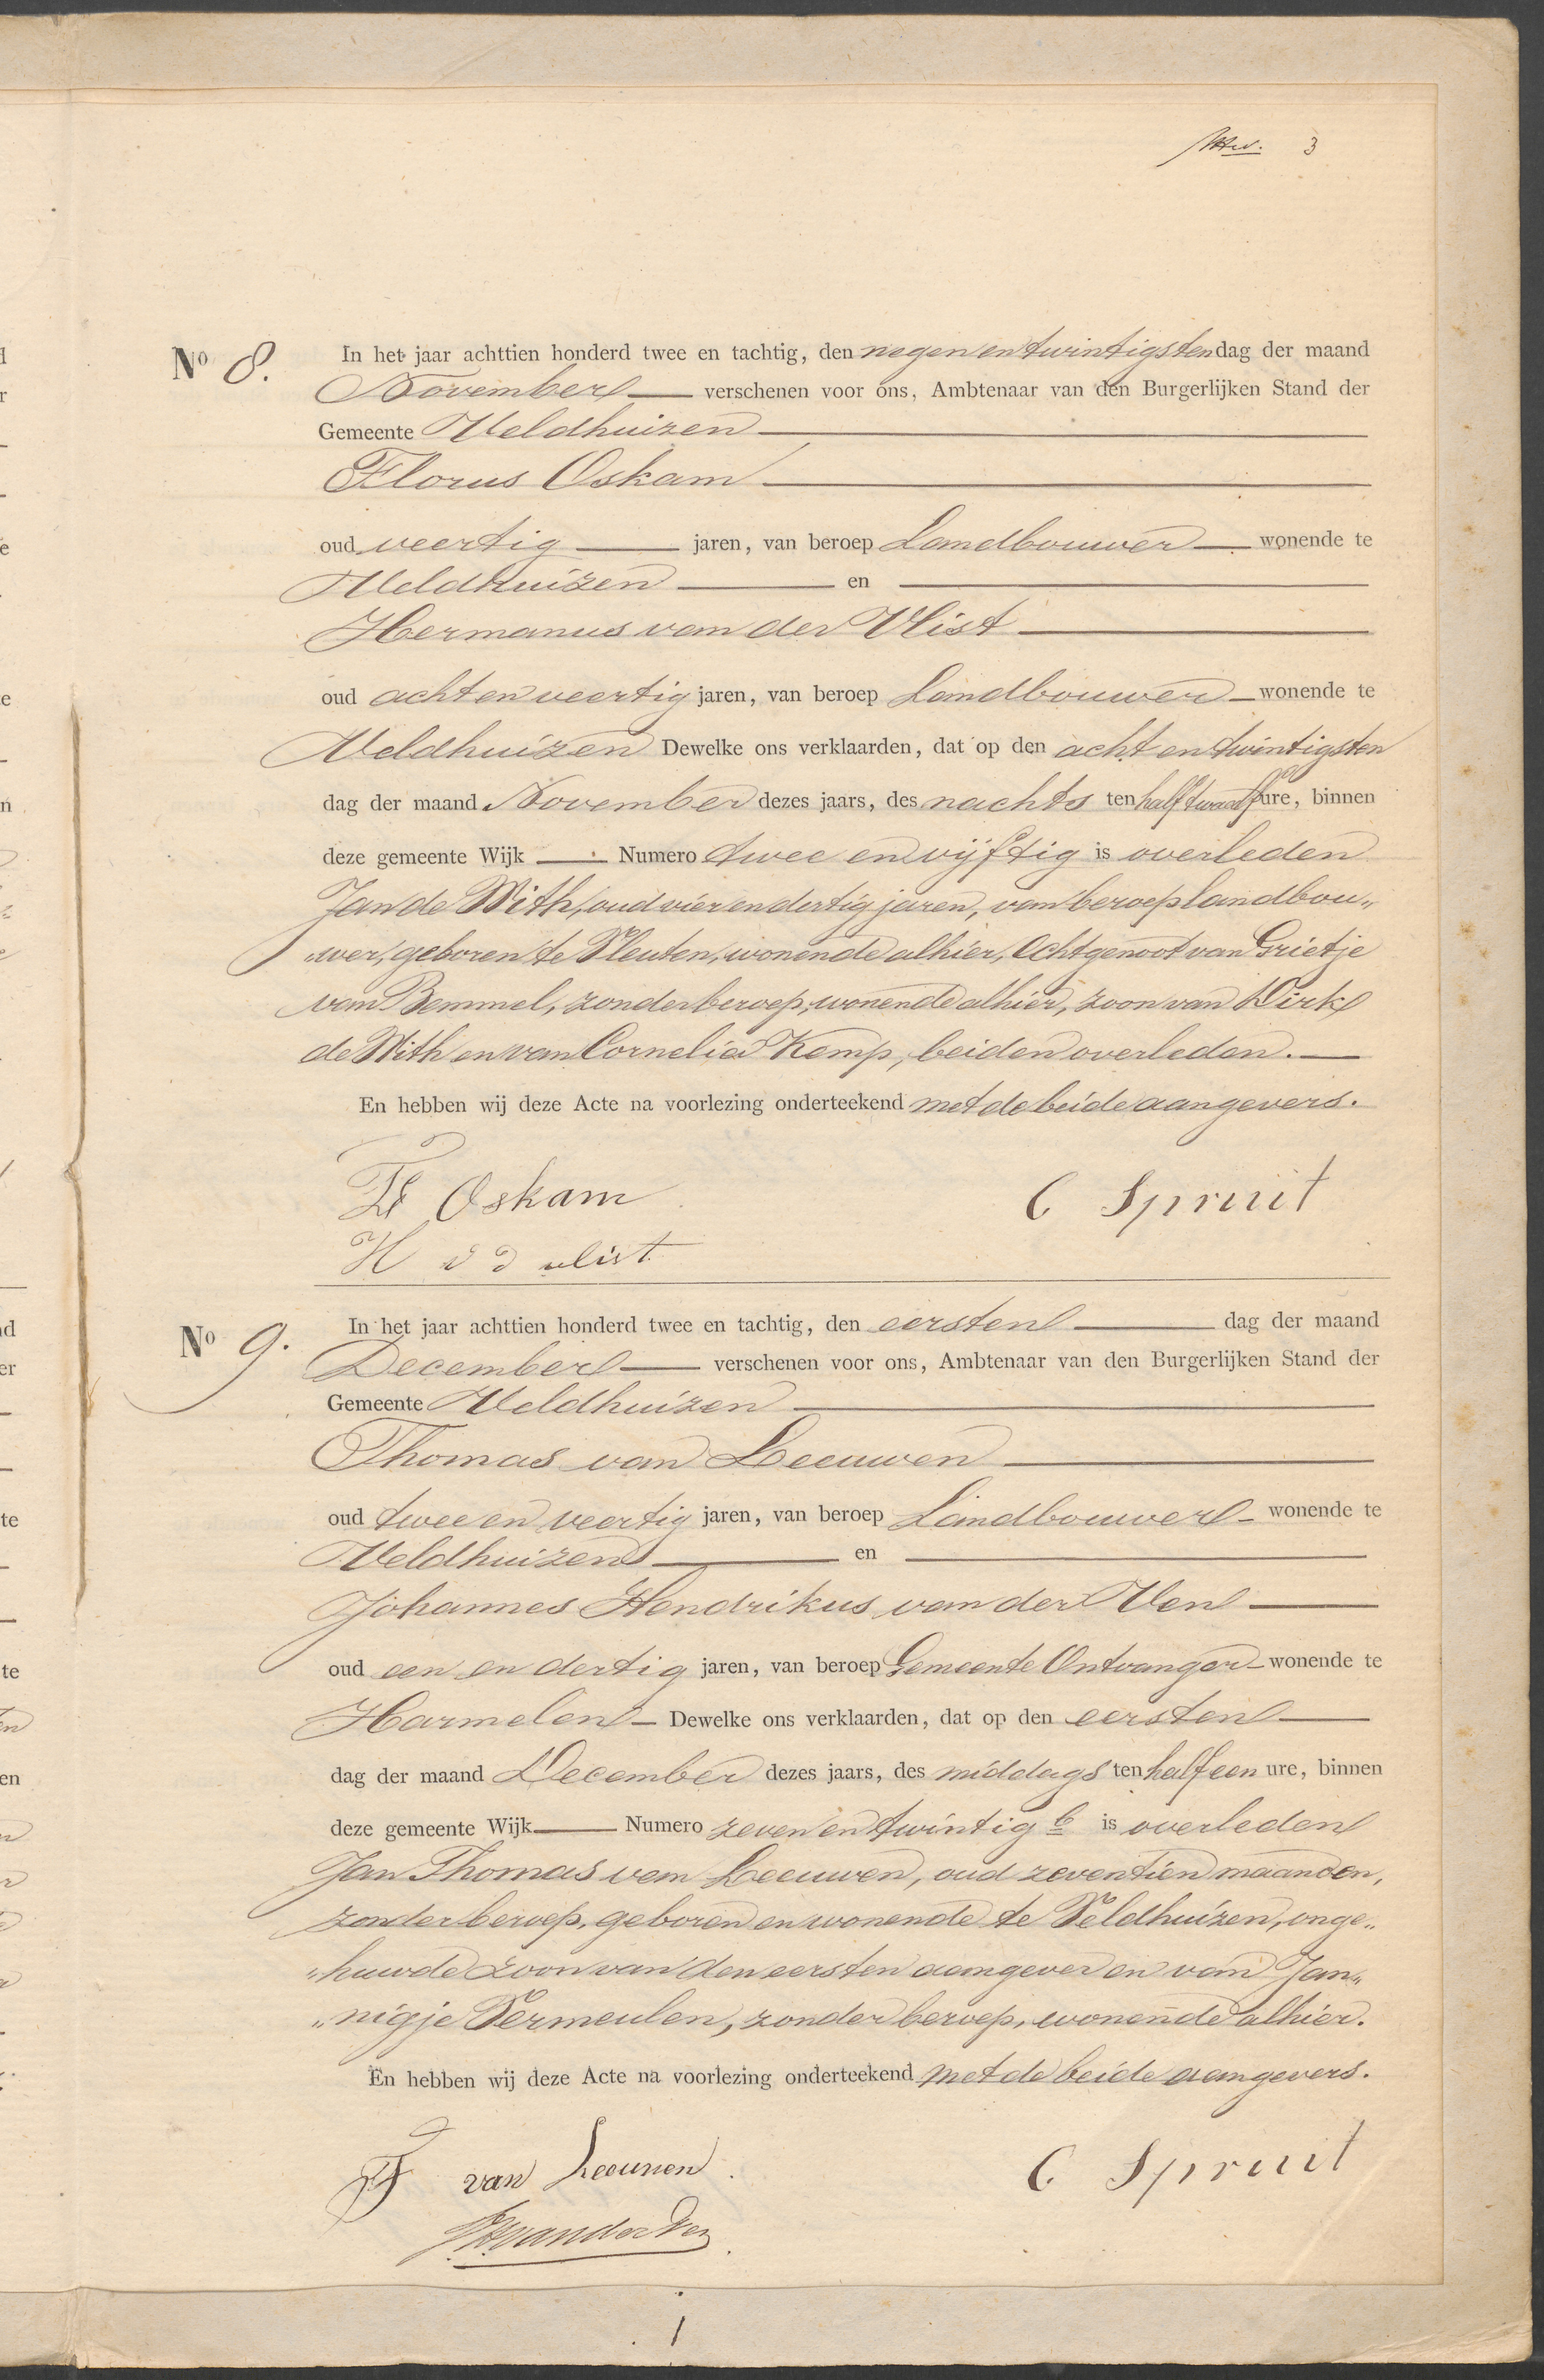 3
No 8. In het jaar achttien honderd twee en tachtig, den negen en twintigsten dag der maand
November verschenen voor ons, Ambtenaar van den Burgerlijken Stand der
Gemeente Veldhuizen
Florus Oskam
oud veertig jaren, van beroep Landbouwer wonende te
Veldhuizen en
Hermanus van der Vlist
oud acht en veertig jaren, van beroep Landbouwer wonende te
Veldhuizen Dewelke ons verklaarden, dat op den acht en twintigsten
dag der maand November dezes jaars, des nachts ten half twaalf ure, binnen
deze gemeente Wijk — Numero twee en vijftig is overleden
Jan de With, oud vier en dertig jaren, van beroep landbou„
„wer, geboren te Vleuten, wonende alhier, Echtgenoot van Grietje
van Bemmel, zonder beroep, wonende alhier, zoon van Dirk
de With en van Cornelia Kemp, beiden overleden. —
En hebben wij deze Acte na voorlezing onderteekend met de beide aangevers.
Fs Oskam C Spruit
H v d vlist
No 9. In het jaar achttien honderd twee en tachtig, den eersten dag der maand
December verschenen voor ons, Ambtenaar van den Burgerlijken Stand der
Gemeente Veldhuizen
Thomas van Leeuwen
oud twee en veertig jaren, van beroep Landbouwer wonende te
Veldhuizen en
Johannes Hendrikus van der Ven
oud een en dertig jaren, van beroep Gemeente Ontvanger wonende te
Harmelen Dewelke ons verklaarden, dat op den eersten
dag der maand December dezes jaars, des middags ten half een ure, binnen
deze gemeente Wijk — Numero zeven en twintig b is overleden
Jan Thomas van Leeuwen, oud zeventien maanden,
zonder beroep, geboren en wonende te Veldhuizen, onge„
„huwde zoon van den eersten aangever en van Jan„
„nigje Vermeulen, zonder beroep, wonende alhier.
En hebben wij deze Acte na voorlezing onderteekend met de beide aangevers.
T van Leeuwen C Spruit
JHvanderVen